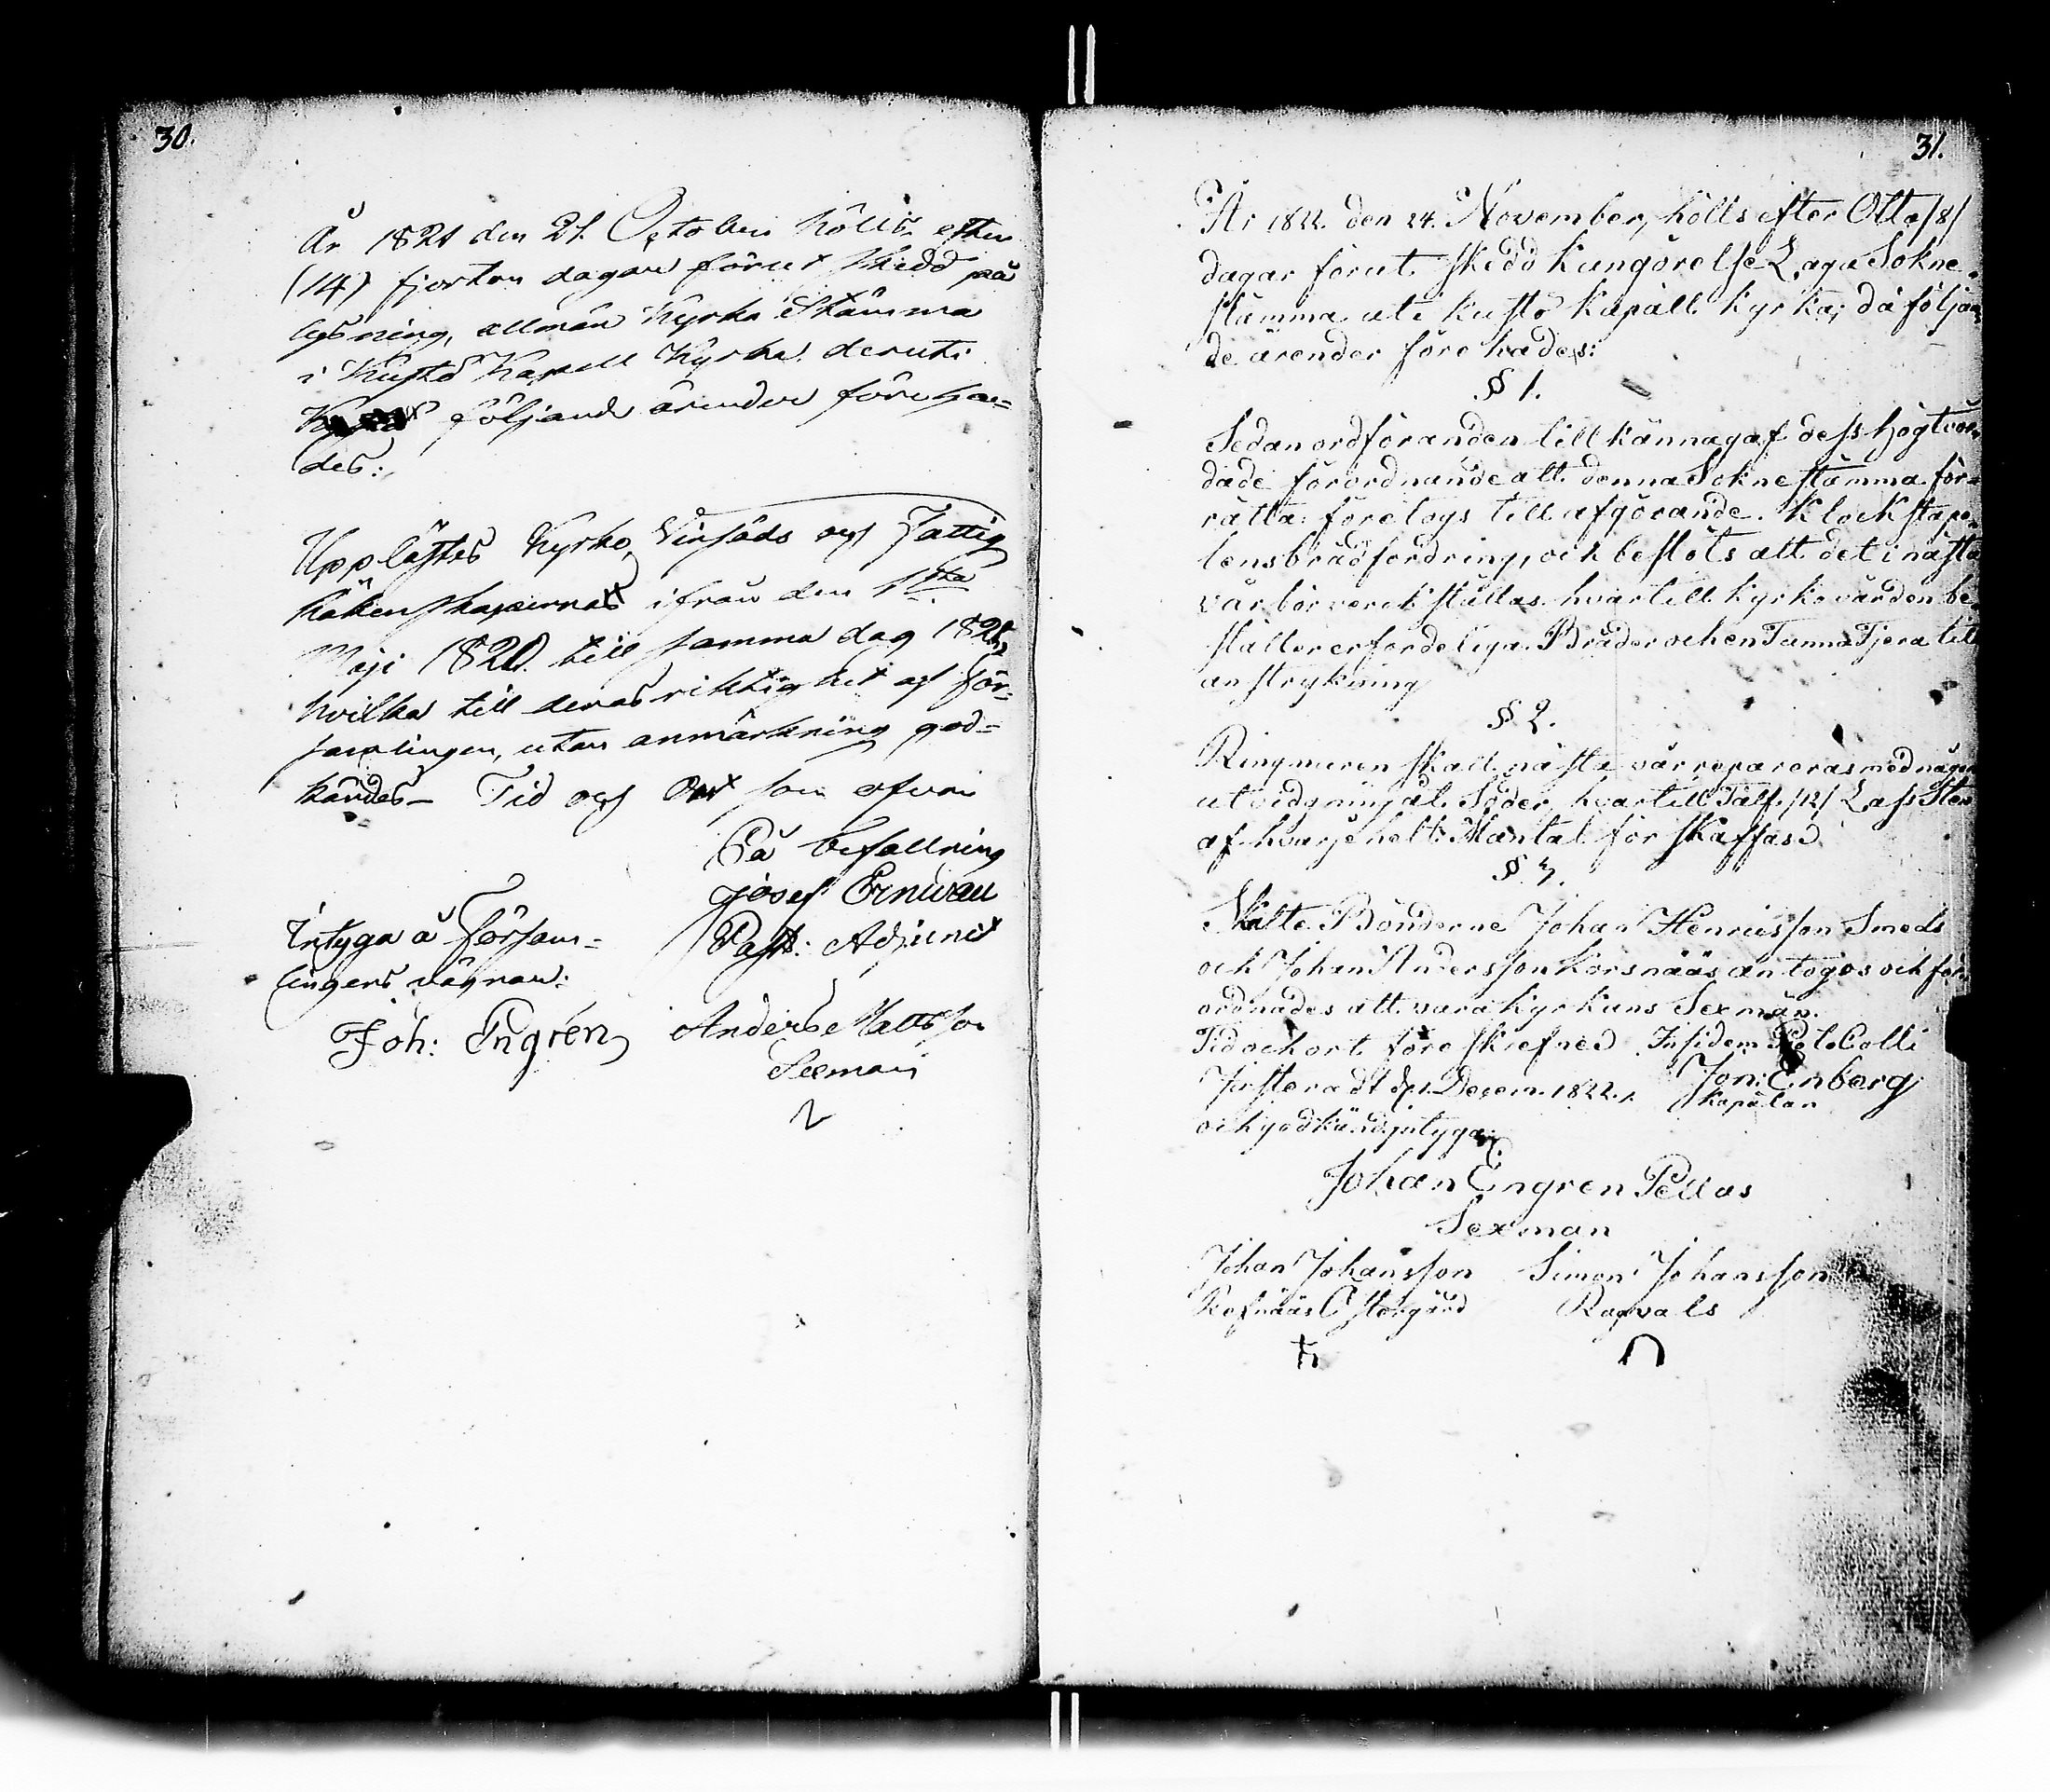 30.
År 1821 den 21. October hölts efter
(14) fjorton dagar förut skedd på
lysning, allmän Kyrko Stämma
i Kustö Kapell Kyrka deruti
följande ärender föreha-
des:
Upplästes Kyrko, Vinsäds och Fattig
Räkenskaperna ifrån den 1sta
Maji 1820. till samma dag 1821,
hvilka till deras riktighet af för-
samlingen, utan anmärkning god-
kändes – Tid och Ort som ofvan
På befallning
Josef Ernwall
Past: Adjunct
Intyga å Försam-
lingens vägnar:
Joh: Engrén
Anders Mattsson
Sexman
31.
År 1822. den 24. November, hölts efter Otta /8/
dagar förut skedd kungörelse Laga Sokne-
stämma uti Kustö Kapäll kyrka; då följan-
de ärender före hades:
§ 1.
Sedan ordföranden till känna gaf dess högtvör-
dade förordnande att denna Soknestämma för-
rätta: företogs till afgörande. Klockstape-
lens brädfordring, och beslöts att det i nästa
vår bör verckställas hvartill kyrkovärden be-
ställer erforderliga Bräder och en Tunna Tjera till
anstrykning
§ 2.
Ringmuren skall nästa vår repareras med någon
utvidgning åt Söder, hvartill Tolf /12/ Lass Sten
af hvarje helt Mantal för skaffas.
§ 3.
Skatte Bönderne Johan Henricsson Smeds
och Johan Andersson Korsnääs an togos och för-
ordnades att vara Kyrkans Sexmän.
Tid och ort föreskrefned In fidem Protocolli
Justeradt d. 1. Decem. 1822. Jon: Enberg
Kapälan
och godkänd, intyga:
Johan Engren Pellas
Sexman
Johan Johansson Simon Johansson
Refnääs Östergård Ragvals